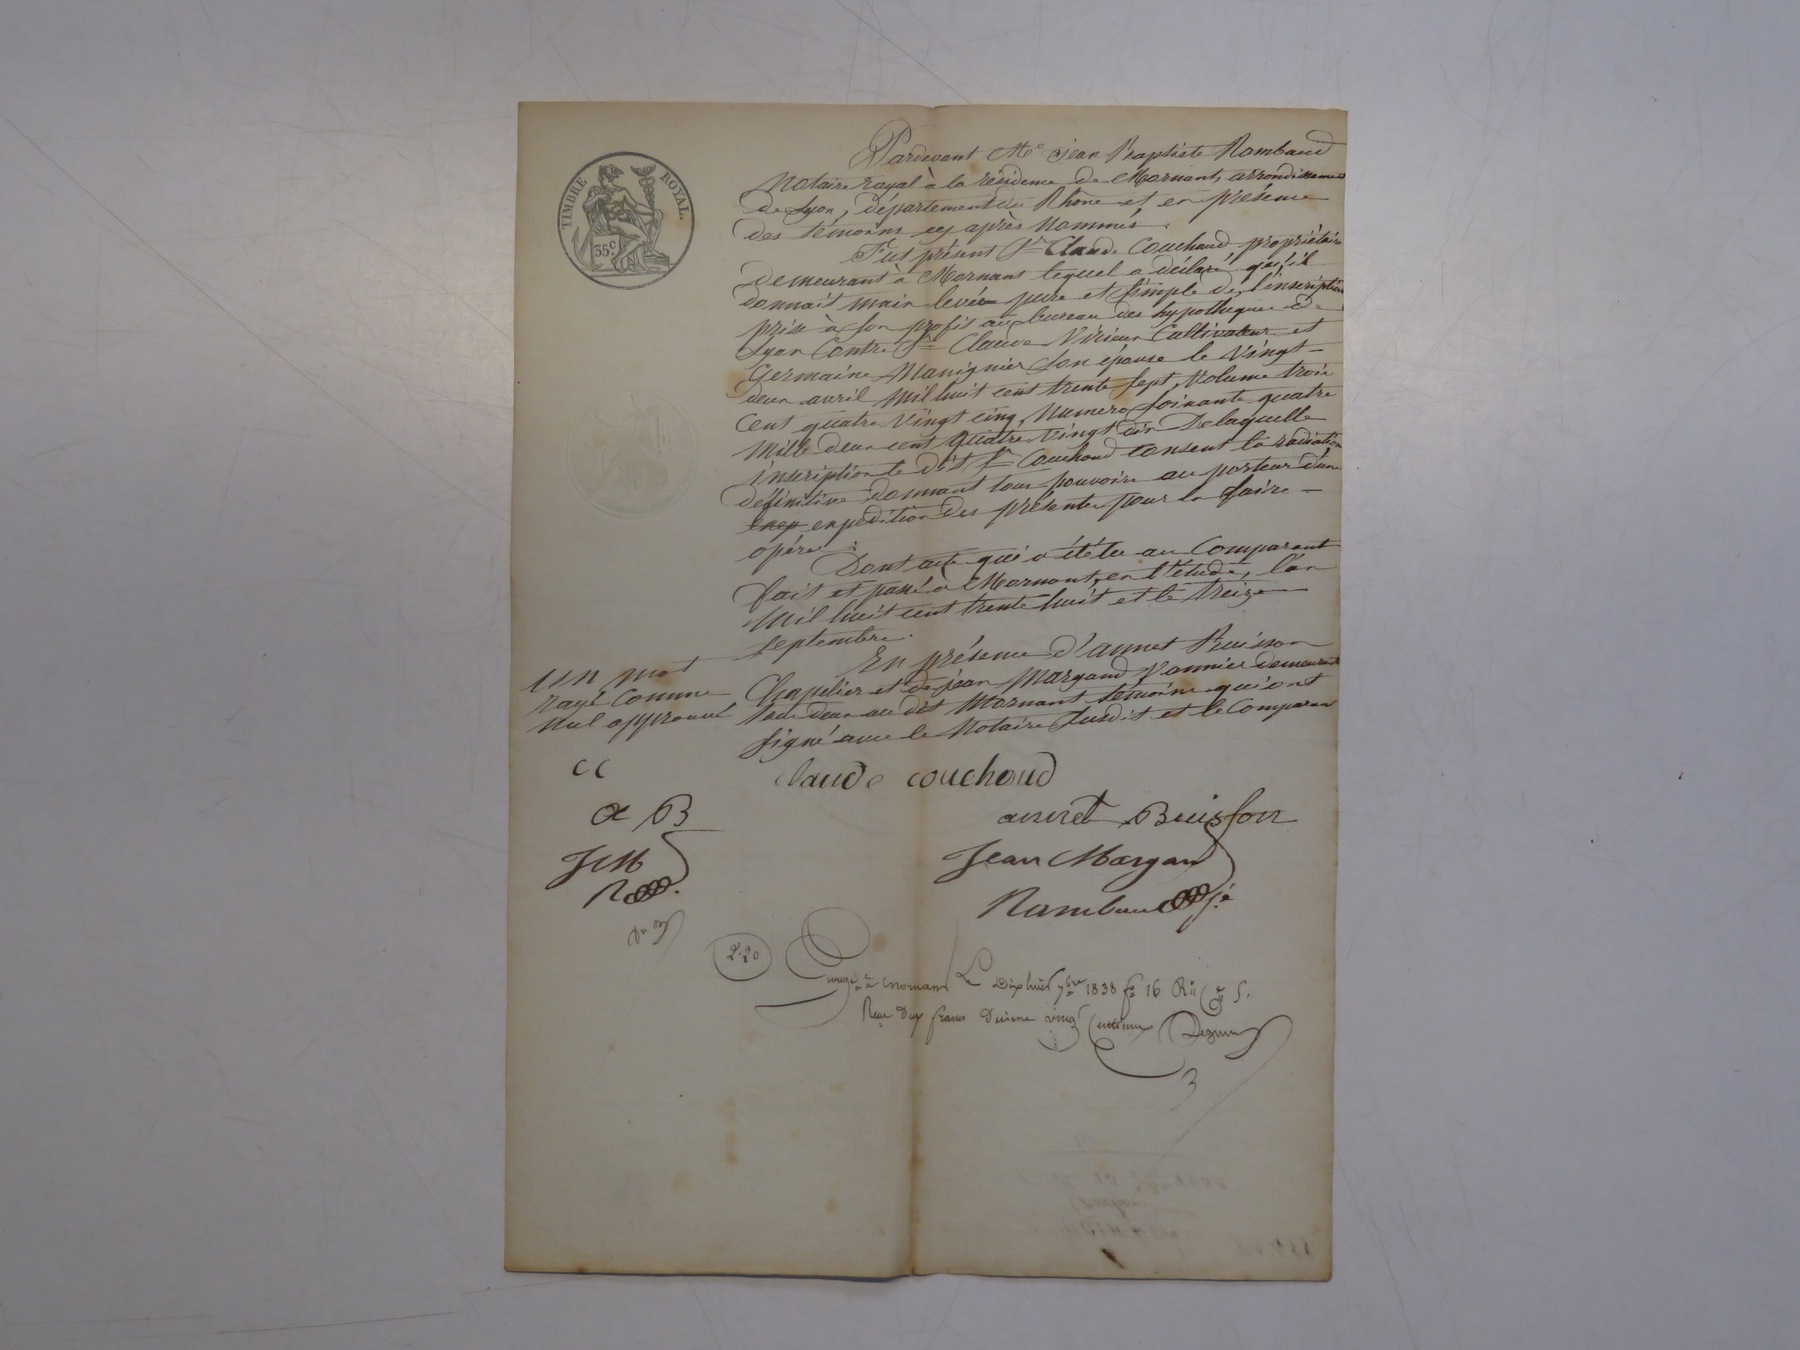 TIMBRE ROYAL.
35 c.
Pardevant Me jean Baptiste Rambaud
Notaire royal à la résidence de Mornant, arrondissement
de Lyon, département du Rhône et en présence
des témoins cy après Nommés.
Fut présent Sr Claude Couchoud propriétaire
demeurant à Mornant lequel a déclaré qu'il
donnait main levée pure et simple de l'inscription
prise à son profit au bureau des hypothèques de
Lyon Contre Sr Claude Virieux Cultivateur et
Germaine Manignier son épouse le Vingt
deux avril Mil huit cent trente sept, Volume trois
Cent quatre Vingt cinq, Numero soixante quatre
Mille deux cent Quatre Vingt dix De laquelle
inscription le dit Sr Couchoud consent la radiation
définitive donnant tous pouvoirs au porteur d'une
enep expédition des présentes pour la faire
opérer.
Dont acte qui a été lu au Comparant
fait et passé à Mornant, en l'étude, l'an
Mil huit cent trente huit et le treize
septembre.
En présence d'annet Buisson
Chapelier et de jean Margand Vannier demeurant
tous deux au dit Mornant témoins qui ont
signé avec le Notaire susdit et le Comparant
un mot
rayé Comme
Nul approuvé
CC
a B
JM
R
claude couchoud
annet Buisson
Jean Margan
Rambaud
2.20
Enregé à Mornant Le Dix huit 7bre 1838 fo 16 Ro Ce 5.
Reçu Deux francs Dixime vingt Centimes